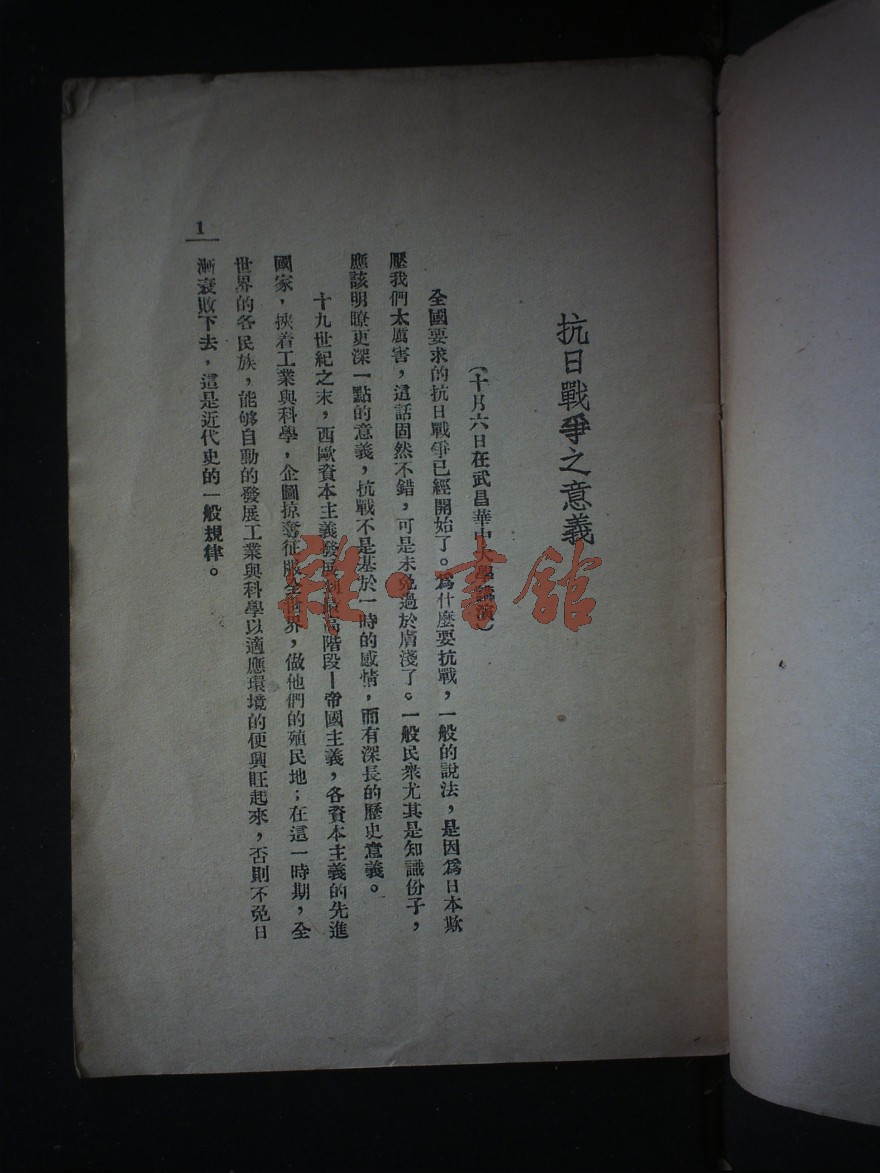 抗日戰爭之意義
(十月六日在武昌華中大學講演)
全國要求的抗日戰爭已經開始了。爲什麼要抗戰,一般的說法,是因爲日本欺
壓我們太厲害,這話固然不錯,可是未免過於膚淺了。一般民衆尤其是知識份子,
應該明瞭更深一點的意義,抗戰不是基於一時的感情,而有深長的歷史意義。
十九世紀之末,西歐資本主義發展到最高階段—帝國主義,各資本主義的先進
國家,挾着工業與科學,企圖掠奪征服全世界,做他們的殖民地;在這一時期,全
世界的各民族,能够自動的發展工業與科學以適應環境的便興旺起來,否則不免日
漸衰敗下去,這是近代史的一般規律。
1
雜·書館